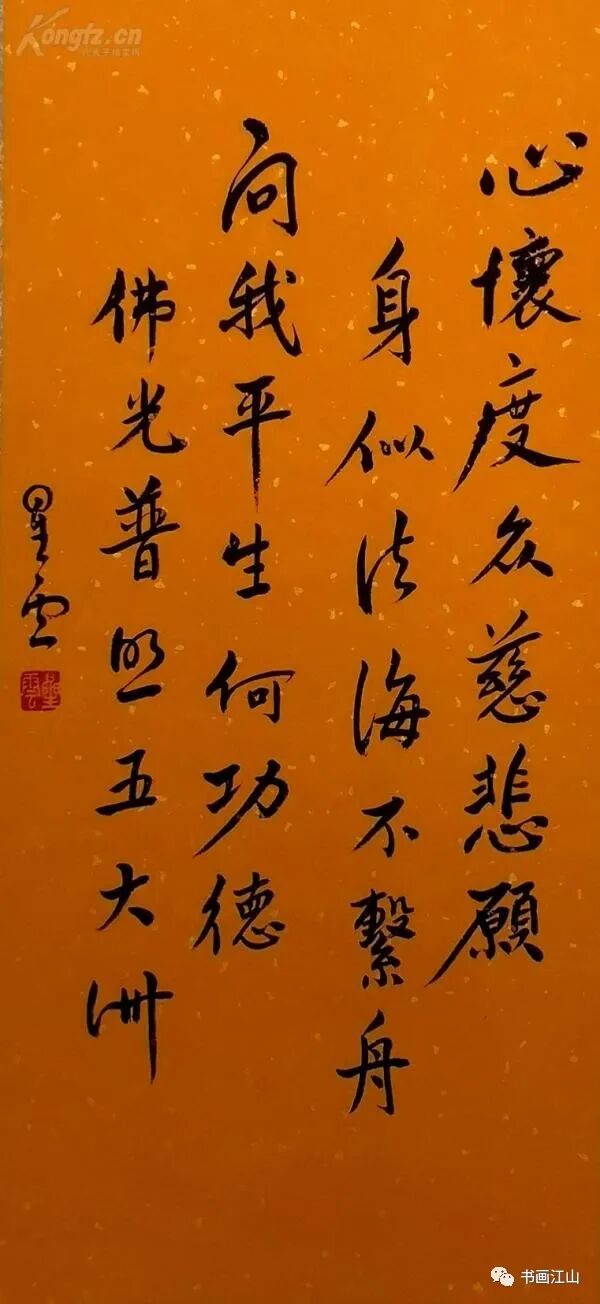 心懷度众慈悲願
身似法海不繫舟
向我平生何功德
佛光普照五大洲
星雲
星雲
Kongfz.cn
书画江山